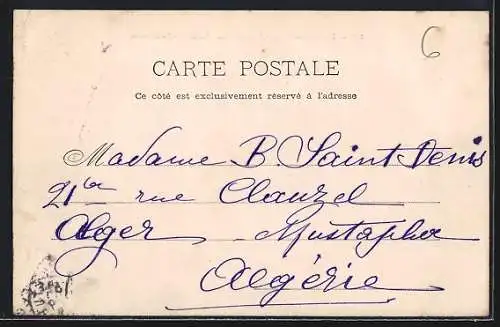 6
CARTE POSTALE
Ce côté est exclusivement réservé à l'adresse
Madame B. Saint-Denis
21 bis rue Clauzel
Alger Mustapha
Algérie